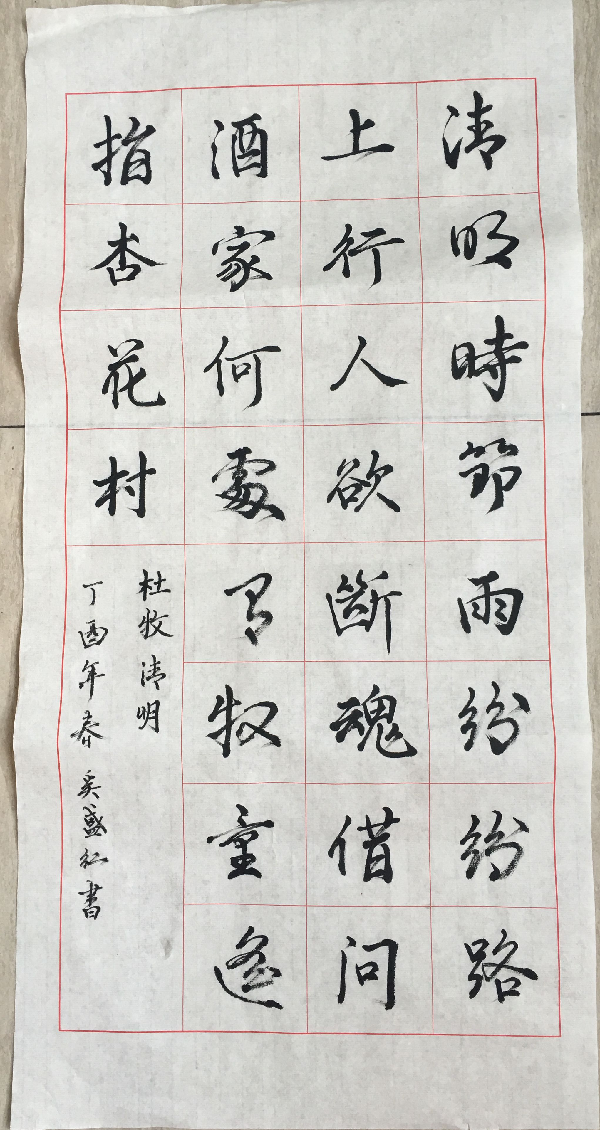 清明時節雨紛紛路
上行人欲斷魂借问
酒家何處有牧童遙
指杏花村
杜牧清明
丁酉年春奚盛紅書